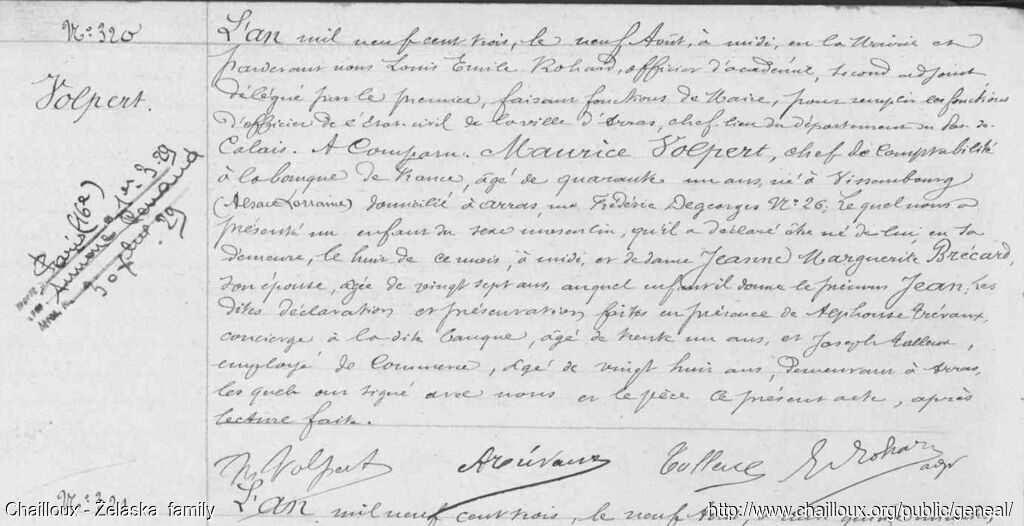 N° 320
Volpert.
L'an mil neuf cent trois, le neuf Août, à midi, en la Mairie et
pardevant nous Louis Emile Rohard, officier d'académie, second adjoint
délégué par le premier, faisant fonctions de Maire, pour remplir les fonctions
d'officier de l'Etat-civil de la ville d'Arras, chef lieu du département du Pas-de-
Calais. A Comparu. Maurice Volpert, chef de Comptabilité
à la banque de France, âgé de quarante un ans, né à Vissembourg
(Alsace Lorraine) domicilié à Arras, rue Frédéric Degeorges N° 26, lequel nous a
présenté un enfant du sexe masculin, qu'il a déclaré être né de lui, en sa
demeure, le huit de ce mois, à midi, et de dame Jeanne Marguerite Brécard,
son épouse, âgée de vingt sept ans, auquel enfant il donne le prénom Jean; les
dites déclaration et présentation faites en présence de Alphonse Trévaux,
concierge à la dite banque, âgé de trente un ans, et Joseph Talleux,
employé de Commerce, âgé de vingt huit ans, demeurant à Arras,
lesquels ont signé avec nous et le père le présent acte, après
lecture faite.
Paris (16e)
29
29
M Volpert ATrévaux Talleux E Rohard
adjt
N° 321
L'An mil neuf cent trois, le neuf Août, à
Chailloux - Zelaska family
http://www.chailloux.org/public/geneal/